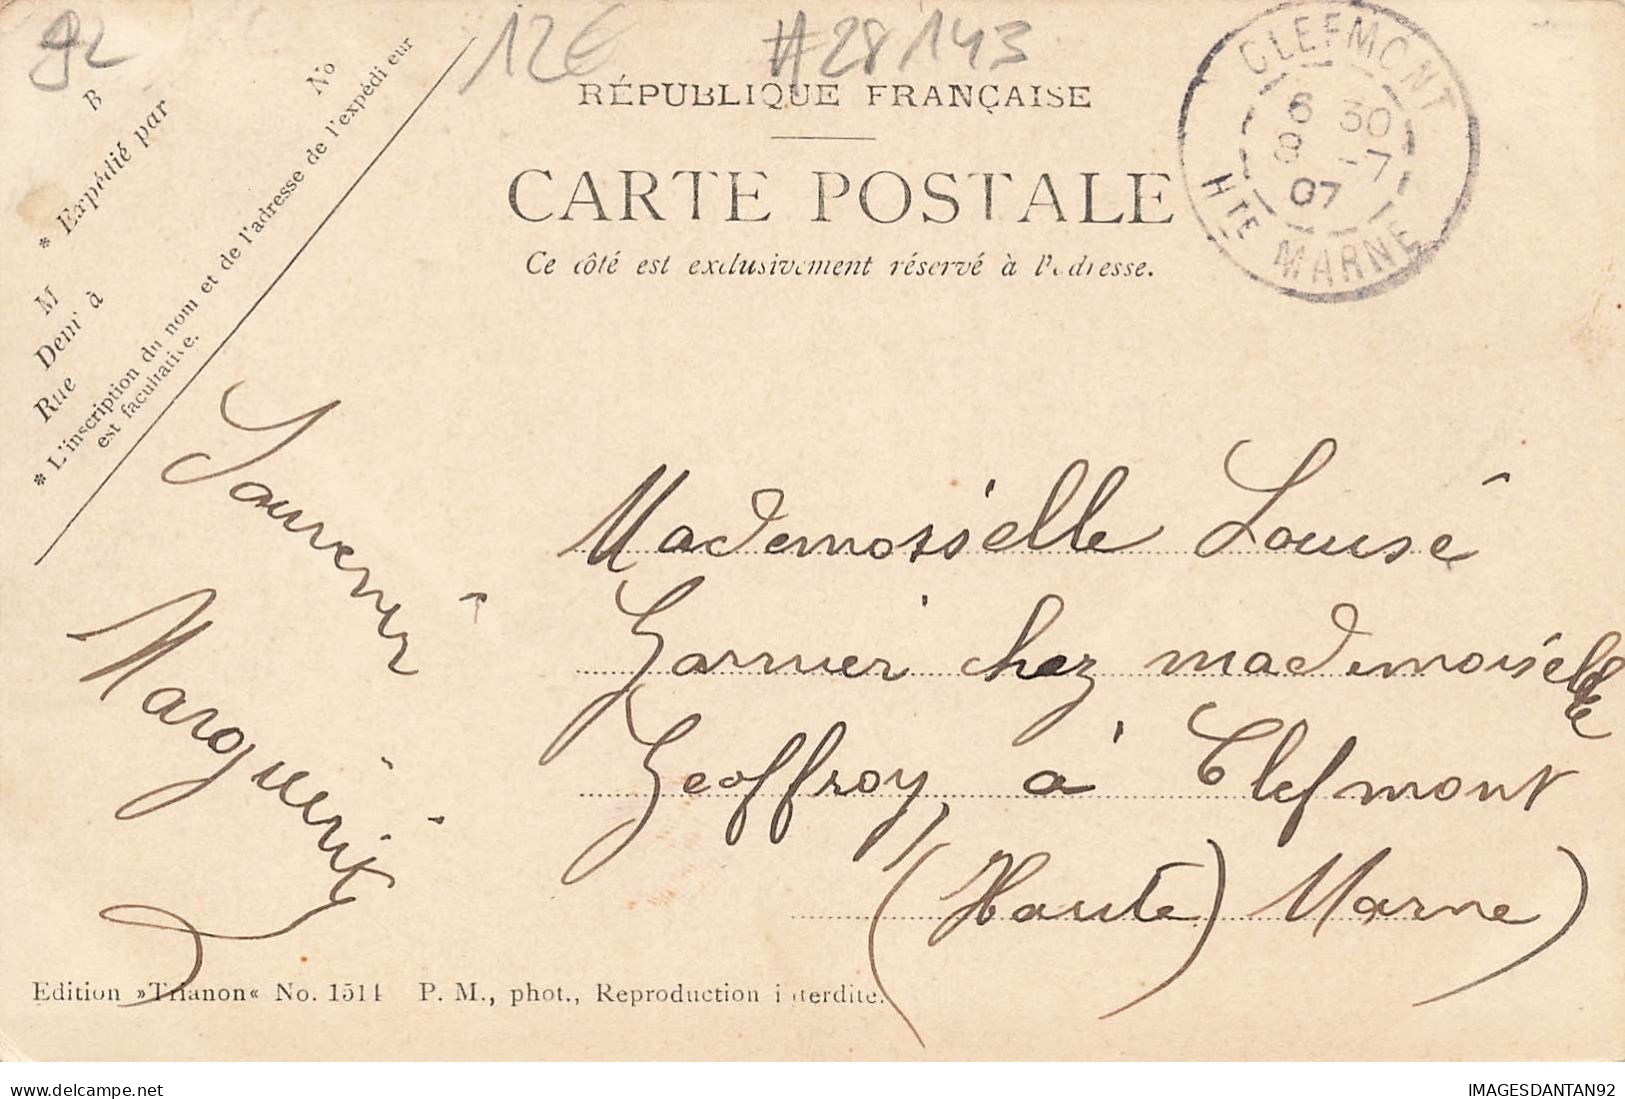 92
12€
#28143
B
N°
* Expédié par
M
Dem' à
Rue
* L'inscription du nom et de l'adresse de l'expéditeur
est facultative.
RÉPUBLIQUE FRANÇAISE
CARTE POSTALE
Ce côté est exclusivement réservé à l'adresse.
CLEFMONT
6 30
8 -7
07
HTE MARNE
Souvenir
Marguerite
Mademoiselle Louise
Garnier chez mademoiselle
Geoffroy, à Clefmont
(Haute) Marne)
Edition »Trianon« No. 1514 P. M., phot., Reproduction interdite.
www.delcampe.net
IMAGESDANTAN92